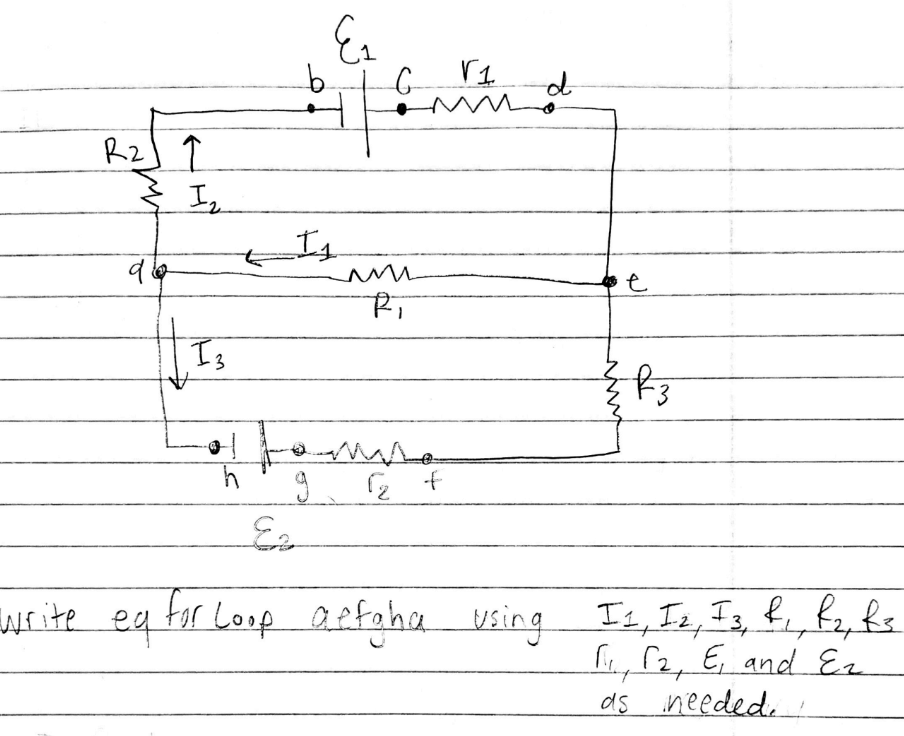 ℰ1
b C r1 d
R2
I2
I1
a e
R1
I3
R3
h g r2 f
ℰ2
write eq for Loop aefgha using I1, I2, I3, R1, R2, R3
r1, r2, ℰ1 and ℰ2
as needed.